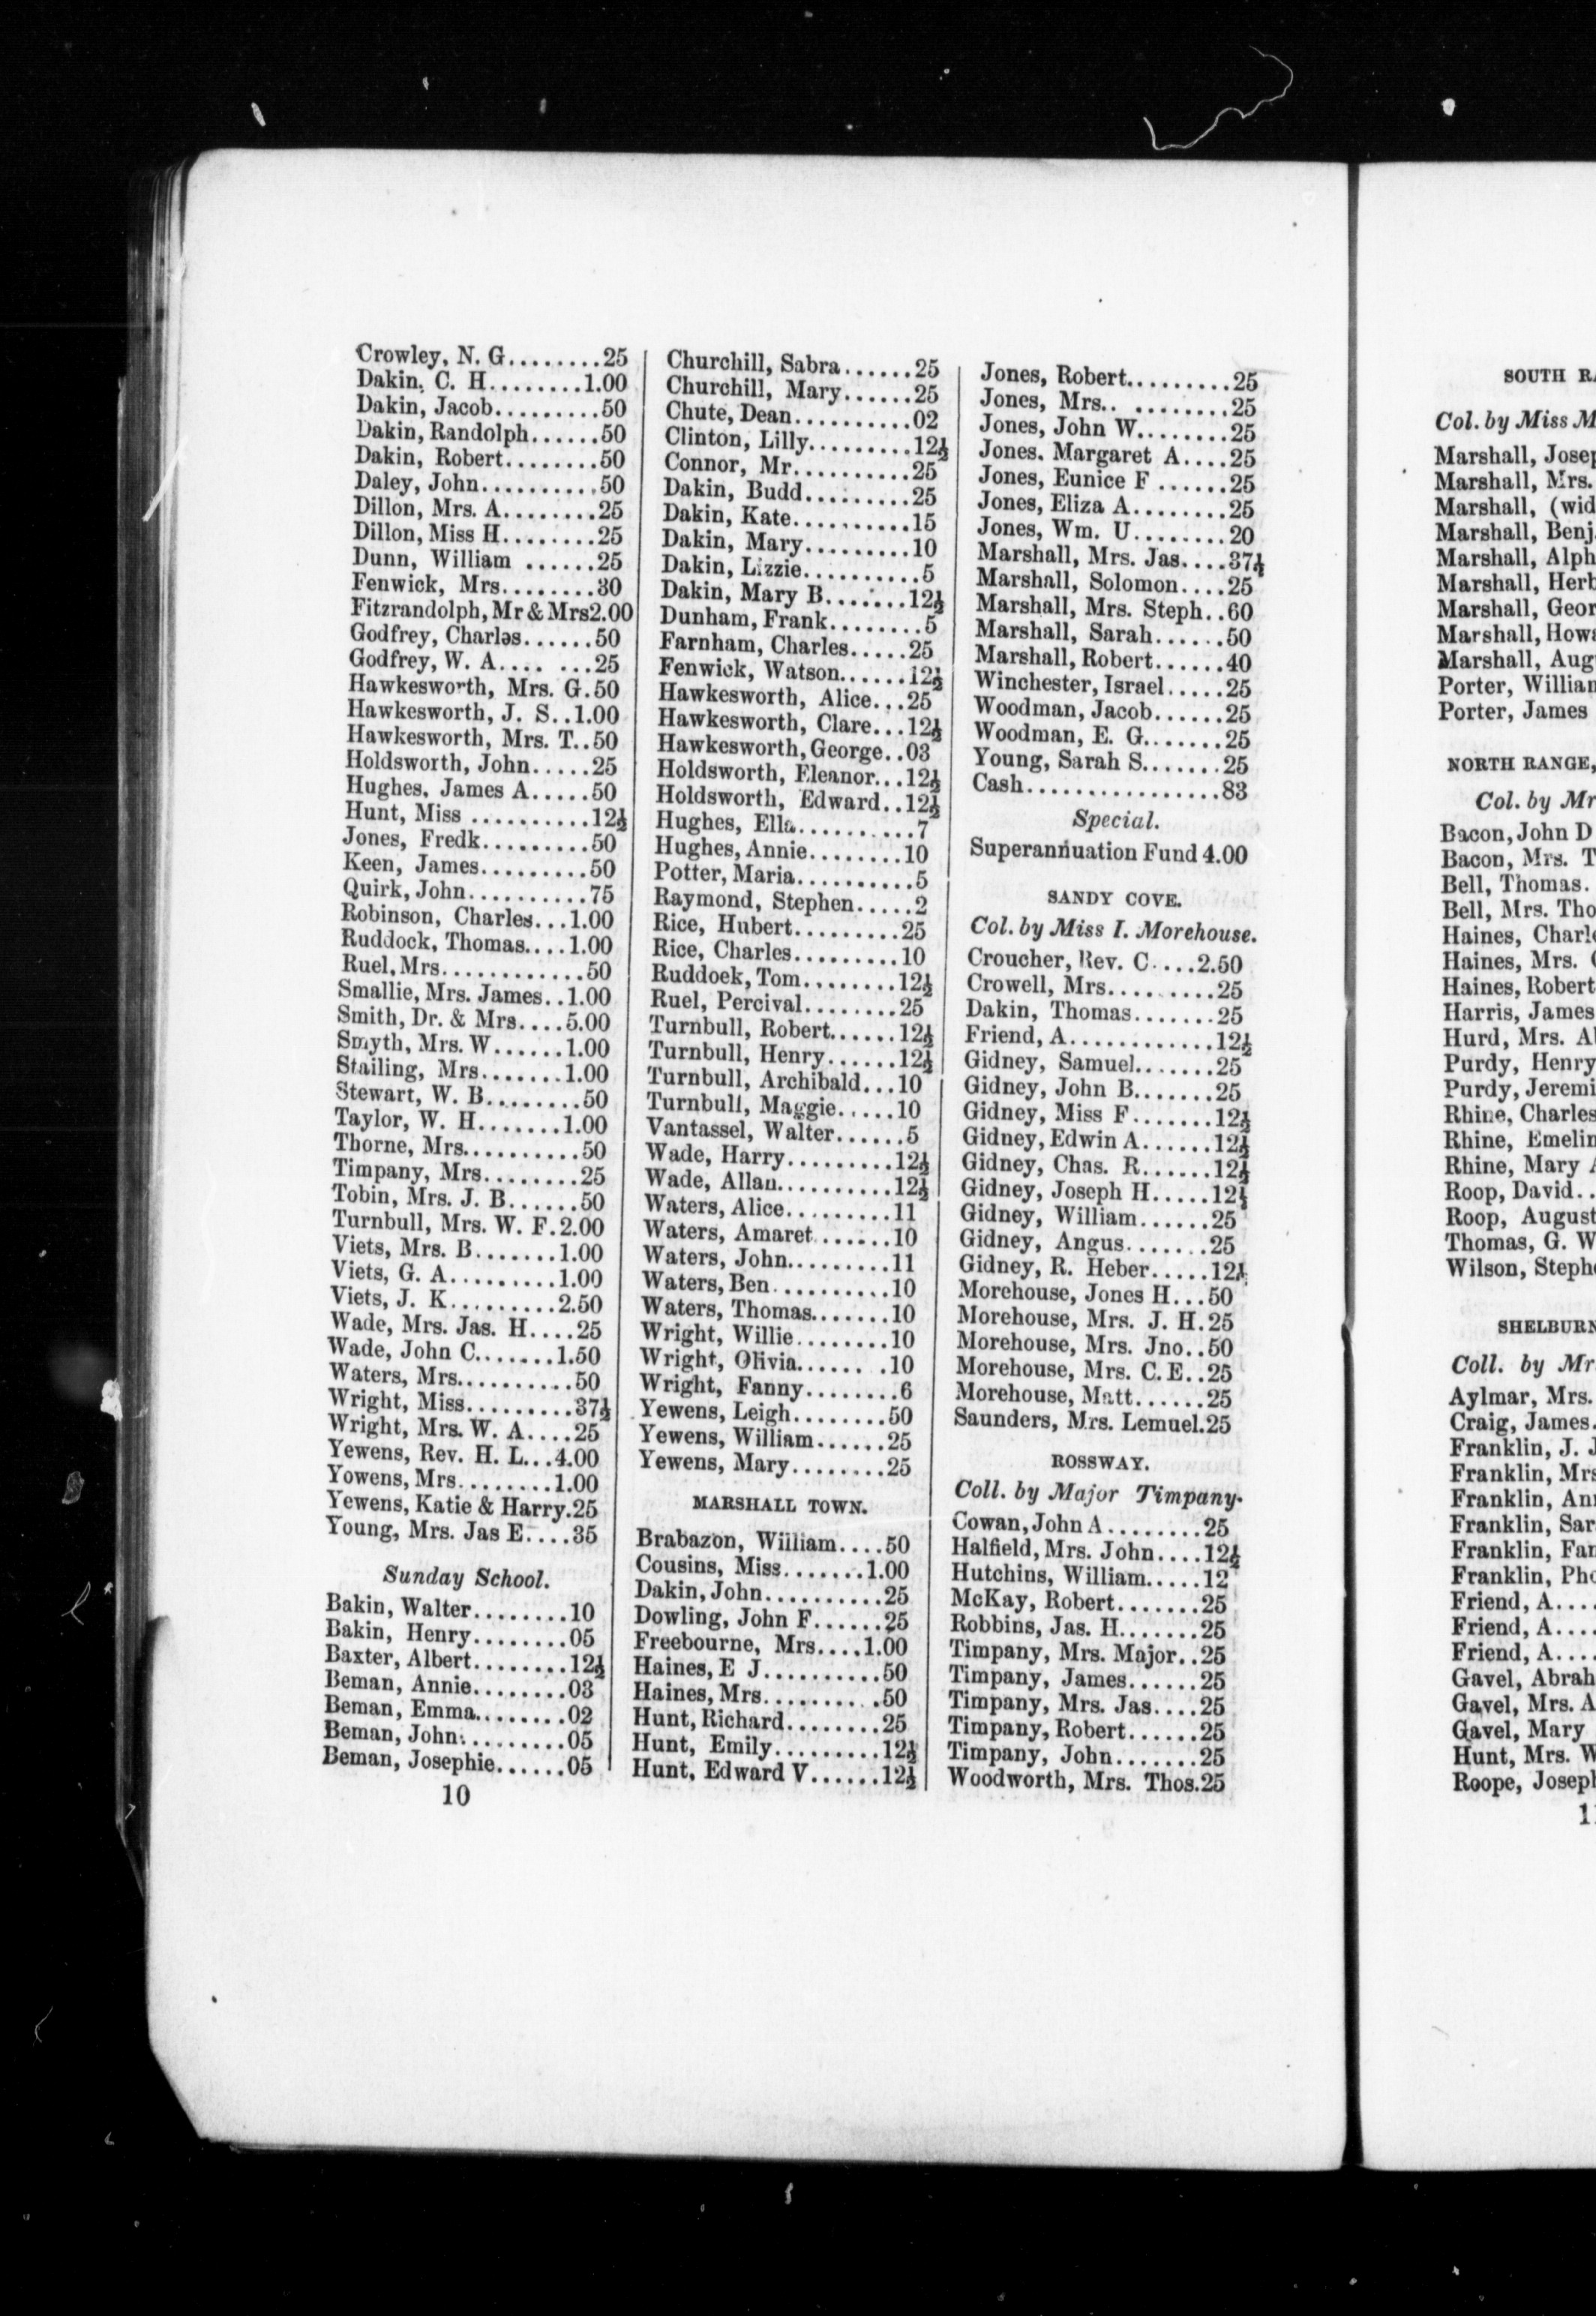 Crowley, N. G........25
Dakin, C. H........1.00
Dakin, Jacob.........50
Dakin, Randolph......50
Dakin, Robert........50
Daley, John..........50
Dillon, Mrs. A........25
Dillon, Miss H........25
Dunn, William ......25
Fenwick, Mrs........30
Fitzrandolph, Mr & Mrs2.00
Godfrey, Charles......50
Godfrey, W. A.... ...25
Hawkesworth, Mrs. G.50
Hawkesworth, J. S..1.00
Hawkesworth, Mrs. T..50
Holdsworth, John.....25
Hughes, James A.....50
Hunt, Miss ..........12½
Jones, Fredk.........50
Keen, James.........50
Quirk, John..........75
Robinson, Charles...1.00
Ruddock, Thomas....1.00
Ruel, Mrs............50
Smallie, Mrs. James..1.00
Smith, Dr. & Mrs....5.00
Smyth, Mrs. W......1.00
Stailing, Mrs.......1.00
Stewart, W. B........50
Taylor, W. H.......1.00
Thorne, Mrs..........50
Timpany, Mrs........25
Tobin, Mrs. J. B......50
Turnbull, Mrs. W. F.2.00
Viets, Mrs. B.......1.00
Viets, G. A.........1.00
Viets, J. K.........2.50
Wade, Mrs. Jas. H....25
Wade, John C.......1.50
Waters, Mrs..........50
Wright, Miss.........37½
Wright, Mrs. W. A....25
Yewens, Rev. H. L...4.00
Yowens, Mrs........1.00
Yewens, Katie & Harry.25
Young, Mrs. Jas E....35
Sunday School.
Bakin, Walter........10
Bakin, Henry........05
Baxter, Albert........12½
Beman, Annie........03
Beman, Emma........02
Beman, John.........05
Beman, Josephie......05
10
Churchill, Sabra......25
Churchill, Mary......25
Chute, Dean..........02
Clinton, Lilly.........12½
Connor, Mr..........25
Dakin, Budd.........25
Dakin, Kate..........15
Dakin, Mary.........10
Dakin, Lizzie..........5
Dakin, Mary B.......12½
Dunham, Frank........5
Farnham, Charles.....25
Fenwick, Watson......12½
Hawkesworth, Alice...25
Hawkesworth, Clare...12½
Hawkesworth, George..03
Holdsworth, Eleanor...12½
Holdsworth, Edward..12½
Hughes, Ella..........7
Hughes, Annie........10
Potter, Maria..........5
Raymond, Stephen.....2
Rice, Hubert.........25
Rice, Charles.........10
Ruddoek, Tom........12½
Ruel, Percival........25
Turnbull, Robert......12½
Turnbull, Henry......12½
Turnbull, Archibald...10
Turnbull, Maggie.....10
Vantassel, Walter......5
Wade, Harry.........12½
Wade, Allan..........12½
Waters, Alice.........11
Waters, Amaret.......10
Waters, John.........11
Waters, Ben..........10
Waters, Thomas.......10
Wright, Willie........10
Wright, Olivia...... .10
Wright, Fanny........6
Yewens, Leigh........50
Yewens, William......25
Yewens, Mary........25
MARSHALL TOWN.
Brabazon, William....50
Cousins, Miss.......1.00
Dakin, John..........25
Dowling, John F......25
Freebourne, Mrs....1.00
Haines, E J..........50
Haines, Mrs..........50
Hunt, Richard........25
Hunt, Emily.........12½
Hunt, Edward V......12½
Jones, Robert.........25
Jones, Mrs.. ........25
Jones, John W........25
Jones. Margaret A....25
Jones, Eunice F ......25
Jones, Eliza A........25
Jones, Wm. U........20
Marshall, Mrs. Jas....37½
Marshall, Solomon....25
Marshall, Mrs. Steph..60
Marshall, Sarah......50
Marshall, Robert......40
Winchester, Israel.....25
Woodman, Jacob......25
Woodman, E. G.......25
Young, Sarah S.......25
Cash................83
Special.
Superannuation Fund 4.00
SANDY COVE.
Col. by Miss I. Morehouse.
Croucher, Rev. C....2.50
Crowell, Mrs.........25
Dakin, Thomas.......25
Friend, A............12½
Gidney, Samuel.......25
Gidney, John B.......25
Gidney, Miss F.......12½
Gidney, Edwin A......12½
Gidney, Chas. R......12½
Gidney, Joseph H.....12½
Gidney, William......25
Gidney, Angus.......25
Gidney, R. Heber.....12½
Morehouse, Jones H...50
Morehouse, Mrs. J. H.25
Morehouse, Mrs. Jno..50
Morehouse, Mrs. C. E..25
Morehouse, Matt......25
Saunders, Mrs. Lemuel.25
ROSSWAY.
Coll. by Major Timpany.
Cowan, John A........25
Halfield, Mrs. John....12½
Hutchins, William.....12
McKay, Robert.......25
Robbins, Jas. H.......25
Timpany, Mrs. Major..25
Timpany, James......25
Timpany, Mrs. Jas....25
Timpany, Robert......25
Timpany, John.......25
Woodworth, Mrs. Thos.25
SOUTH
Col. by Miss
Marshall,
Marshall, Mrs.
Marshall,
Marshall,
Marshall,
Marshall,
Marshall,
Marshall,
Marshall,
Porter,
Porter, James
NORTH RANGE,
Col. by
Bacon, John D
Bacon, Mrs. T
Bell, Thomas.
Bell, Mrs.
Haines,
Haines, Mrs.
Haines, Robert
Harris, James
Hurd, Mrs.
Purdy, Henry
Purdy,
Rhine, Charles
Rhine,
Rhine, Mary
Roop, David..
Roop,
Thomas, G. W
Wilson,
Coll. by
Aylmar, Mrs.
Craig, James.
Franklin, J.
Franklin,
Franklin,
Franklin,
Franklin,
Franklin,
Friend, A....
Friend, A....
Friend, A....
Gavel,
Gavel, Mrs. A
Gavel, Mary
Hunt, Mrs. W
Roope,